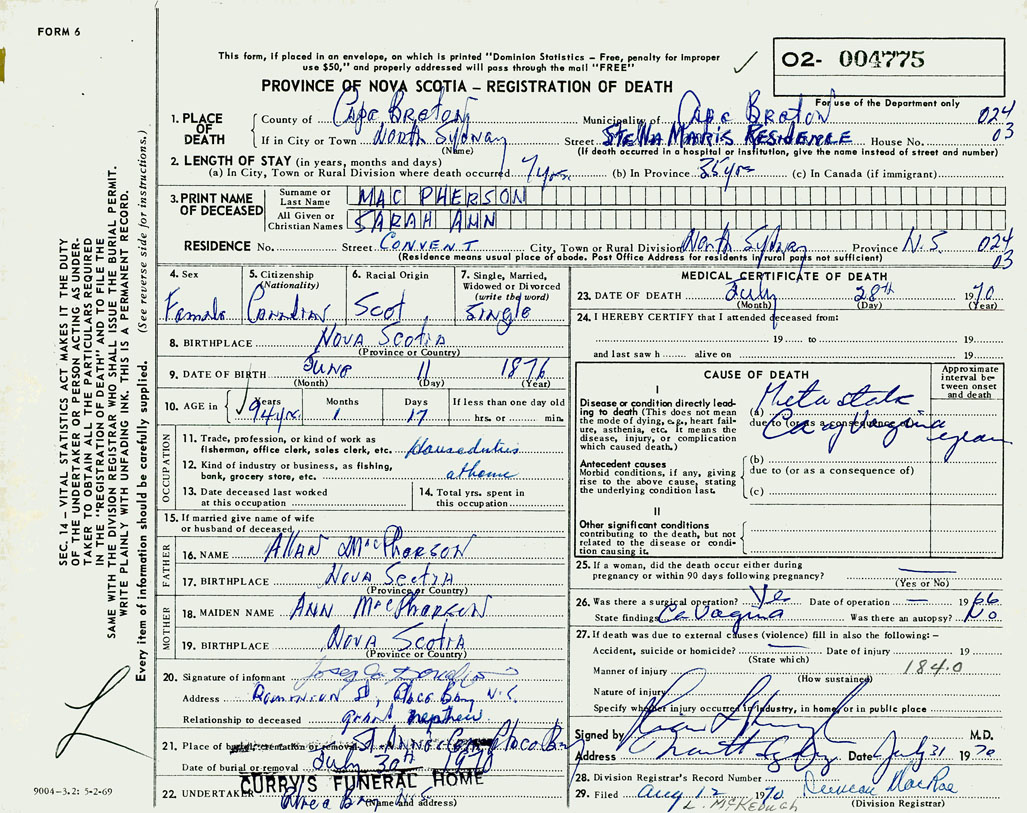 FORM 6
This form, if placed in an envelope, on which is printed "Dominion Statistics – Free, penalty for improper
use $50," and properly addressed will pass through the mail "FREE"
O2- 004775
PROVINCE OF NOVA SCOTIA – REGISTRATION OF DEATH
For use of the Department only
1. PLACE OF DEATH County of Cape Breton Municipality of Cape Breton 024
If in City or Town North Sydney Street Stella Maris Residence House No. 03
(Name) (If death occurred in a hospital or institution, give the name instead of street and number)
2. LENGTH OF STAY (in years, months and days)
(a) In City, Town or Rural Division where death occurred 7 yrs. (b) In Province 35 yrs (c) In Canada (if immigrant)
3. PRINT NAME OF DECEASED Surname or Last Name MAC PHERSON
All Given or Christian Names SARAH ANN
RESIDENCE No. Street CONVENT City, Town or Rural Division North Sydney Province N.S. 024
(Residence means usual place of abode. Post Office Address for residents in rural parts not sufficient) 03
4. Sex Female
5. Citizenship (Nationality) Canadian
6. Racial Origin Scot
7. Single, Married, Widowed or Divorced (write the word) Single
8. BIRTHPLACE Nova Scotia
(Province or Country)
9. DATE OF BIRTH June 11 1876
(Month) (Day) (Year)
10. AGE in Years 94 yrs. Months 1 Days 17 If less than one day old
hrs. or min.
OCCUPATION
11. Trade, profession, or kind of work as
fisherman, office clerk, sales clerk, etc. Houseduties
12. Kind of industry or business, as fishing,
bank, grocery store, etc. at home
13. Date deceased last worked
at this occupation
14. Total yrs. spent in
this occupation
15. If married give name of wife
or husband of deceased
FATHER
16. NAME Allan McPherson
17. BIRTHPLACE Nova Scotia
(Province or Country)
MOTHER
18. MAIDEN NAME Ann MacPherson
19. BIRTHPLACE Nova Scotia
(Province or Country)
20. Signature of informant
Address Dominion St, Glace Bay N.S.
Relationship to deceased grand nephew
21. Place of burial, cremation or removal St Anns Cem Glace Bay
Date of burial or removal July 30th 1970
CURRY'S FUNERAL HOME
22. UNDERTAKER Glace Bay N.S.
(Name and address)
MEDICAL CERTIFICATE OF DEATH
23. DATE OF DEATH July 28th 1970
(Month) (Day) (Year)
24. I HEREBY CERTIFY that I attended deceased from:
19 to 19
and last saw h alive on 19
CAUSE OF DEATH
Approximate interval between onset and death
I
Disease or condition directly lead-
ing to death (This does not
mean the mode of dying, e.g., heart fail-
ure, asthenia, etc. It means the
disease, injury, or complication
which caused death.)
(a)
due to (or as a consequence of)
Ca of Vagina
Antecedent causes
Morbid conditions, if any, giving
rise to the above cause, stating
the underlying condition last.
(b)
due to (or as a consequence of)
(c)
II
Other significant conditions
contributing to the death, but not
related to the disease or condi-
tion causing it.
25. If a woman, did the death occur either during
pregnancy or within 90 days following pregnancy? —
(Yes or No)
26. Was there a surgical operation? Yes Date of operation — 1966
State findings Ca Vagina Was there an autopsy? No
27. If death was due to external causes (violence) fill in also the following: –
Accident, suicide or homicide? — Date of injury 19
(State which)
Manner of injury 184.0
(How sustained)
Nature of injury
Specify whether injury occurred in industry, in home, or in public place
Signed by M.D.
Address North Sydney Date July 31 1970
28. Division Registrar's Record Number
29. Filed Aug 12 1970 Duncan MacRae
L. McKeough (Division Registrar)
SEC. 14 – VITAL STATISTICS ACT MAKES IT THE DUTY
OF THE UNDERTAKER OR PERSON ACTING AS UNDER-
TAKER TO OBTAIN ALL THE PARTICULARS REQUIRED
IN THE "REGISTRATION OF DEATH" AND TO FILE THE
SAME WITH THE DIVISION REGISTRAR WHO SHALL ISSUE THE BURIAL PERMIT.
WRITE PLAINLY WITH UNFADING INK. THIS IS A PERMANENT RECORD.
Every item of information should be carefully supplied. (See reverse side for instructions.)
9004–3.2: 5-2-69